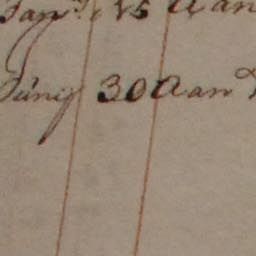 Janij 15 Aan
Junij 30 Aan